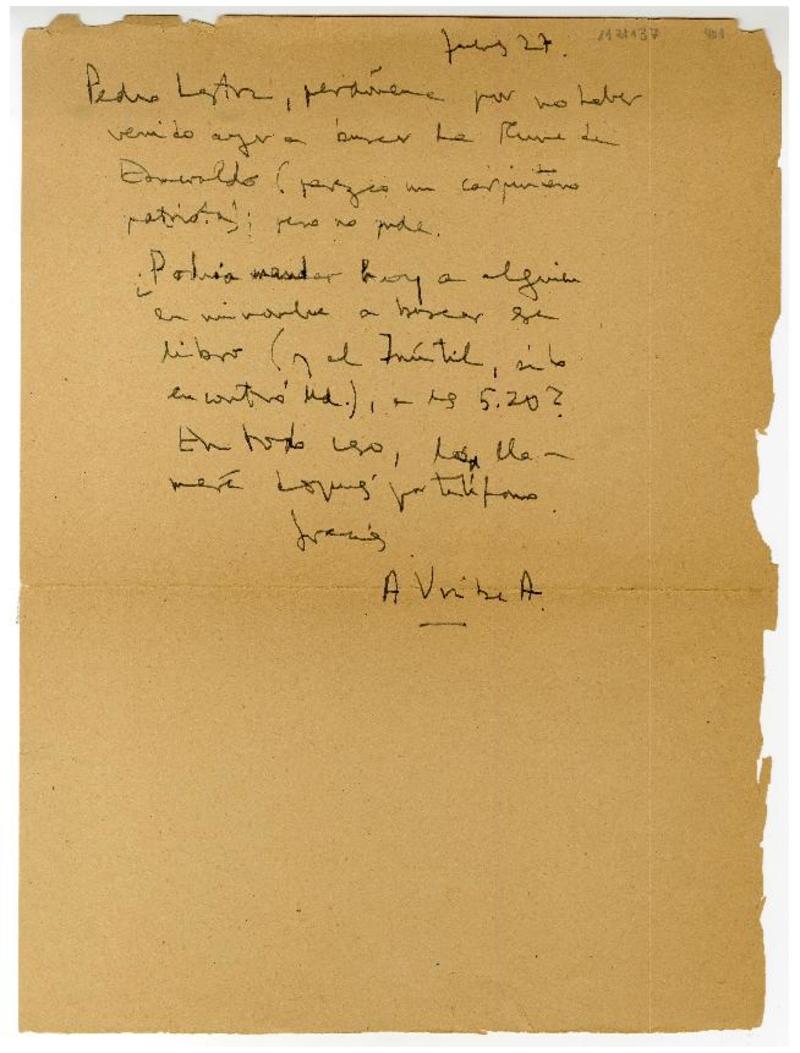 jueves 27.
1121137 401
Pedro Lastra, perdóneme por no haber
venido ayer a buscar La Reina de
Esmeraldo (parezco un carpintero
patriota); pero no pude.
¿Podría mandar hoy a alguien
en mi nombre a buscar ese
libro (y el Inútil, si lo
encontró Ud.), a las 5.20?
En todo caso, lo lla-
maré después por teléfono.
Gracias
A Uribe A.